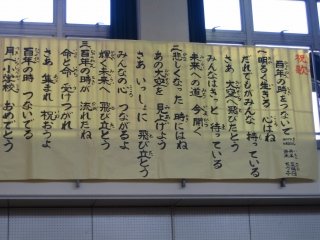 祝歌
百年の時をつないで
一 明るく生きる 心はね
だれでもがみんな 持っている
さあ 大空へ飛びたとう
みんなはきっと 待っている
未来への道 今 開く
二 悲しくなった 時にはね
あの大空を 見上げよう
さあ いっしょに 飛び立とう
みんなの心 つながるよ
輝く未来へ 飛び立とう
三 百年の時が 流れたね
命と命で 受けつがれ
さあ 集まれ 祝おうよ
百年の時 つないでる
小学校 おめでとう